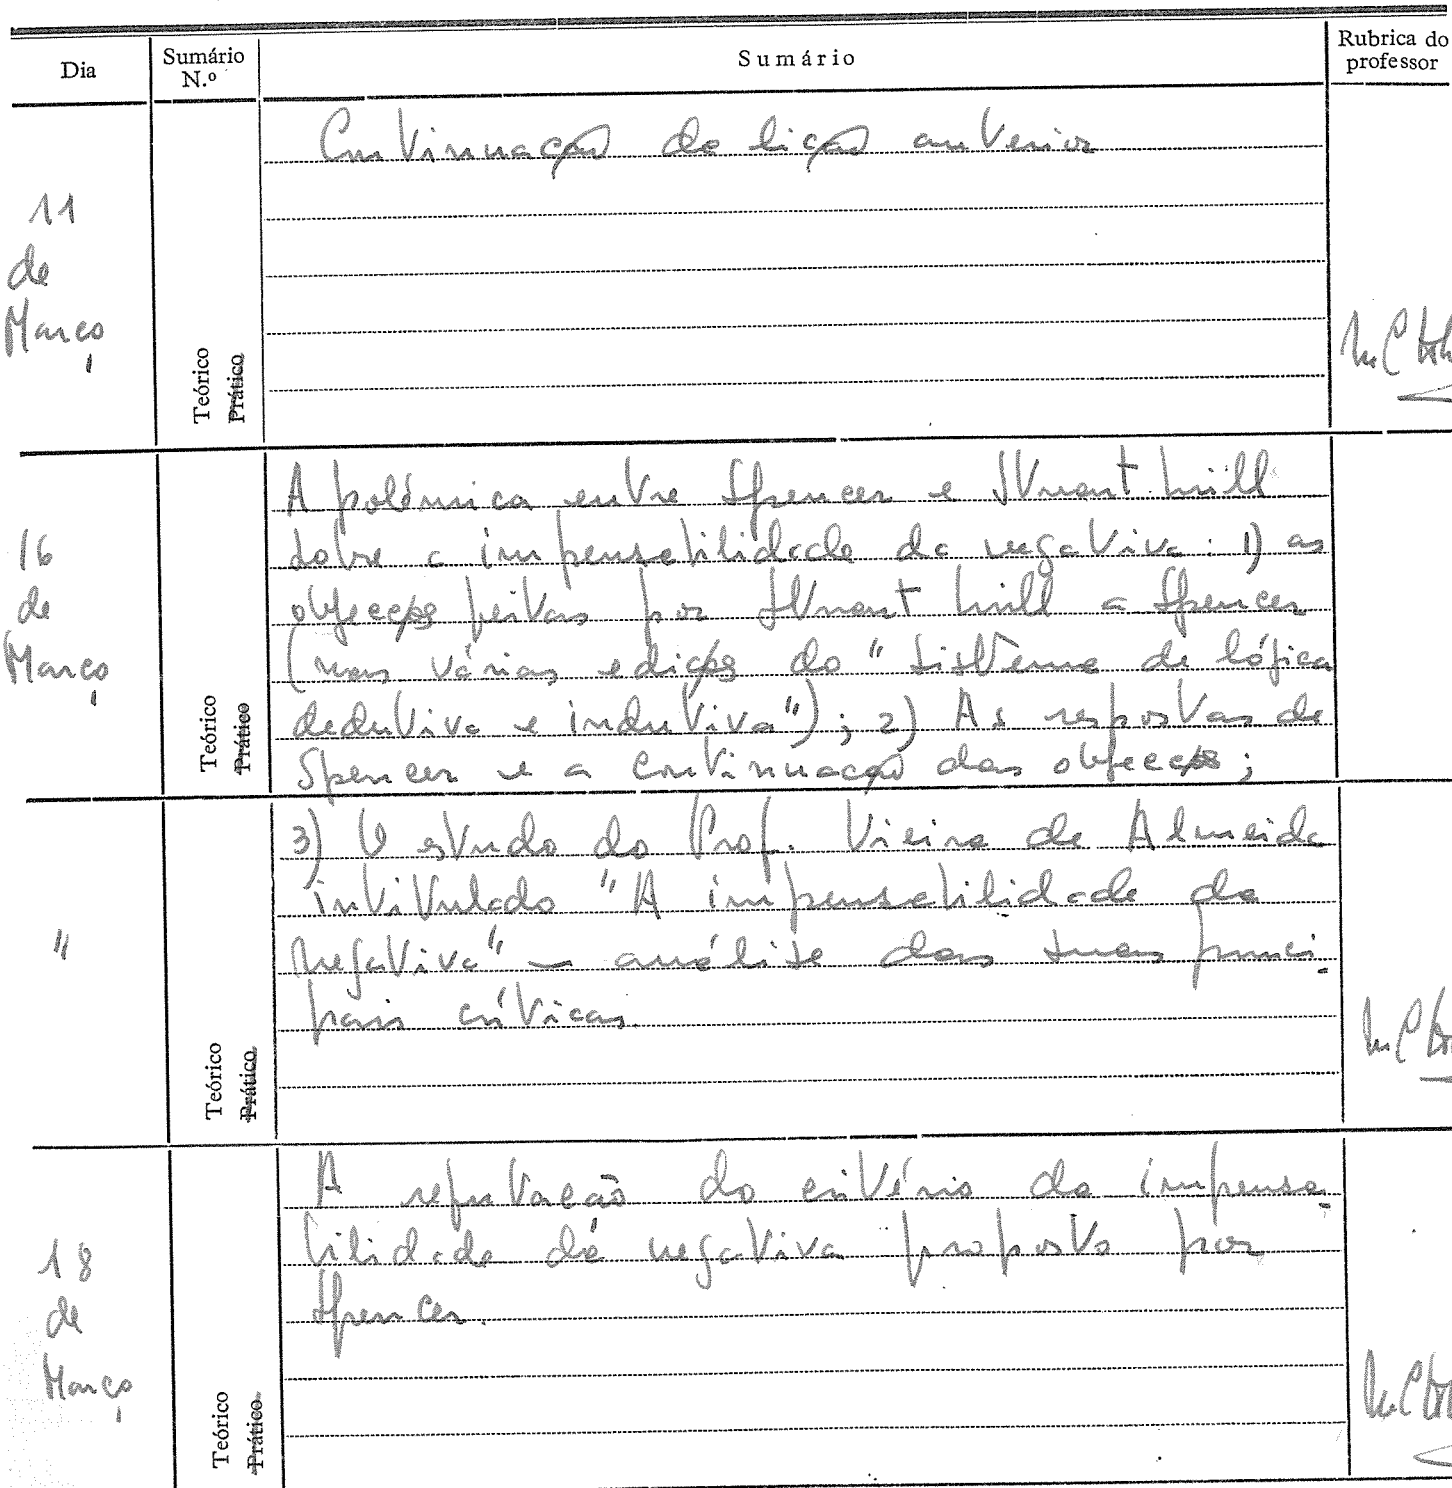 Dia
Sumário
N.º
Sumário
Rubrica do
professor
11
de
Março
Teórico
Prático
Continuação da lição anterior
16
de
Março
Teórico
Prático
A polémica entre Spencer e Stuart Mill
sobre a impensabilidade da negativa: 1) as
objecções feitas por Stuart Mill a Spencer
(nas várias edições do "Sistema de lógica
dedutiva e indutiva"); 2) As respostas de
Spencer e a continuação das objecções;
"
Teórico
Prático
3) O estudo do Prof. Vieira de Almeida
intitulado "A impensabilidade da
negativa" — análise das suas princi-
pais críticas.
18
de
Março
Teórico
Prático
A refutação do critério da impensa-
bilidade da negativa proposto por
Spencer.